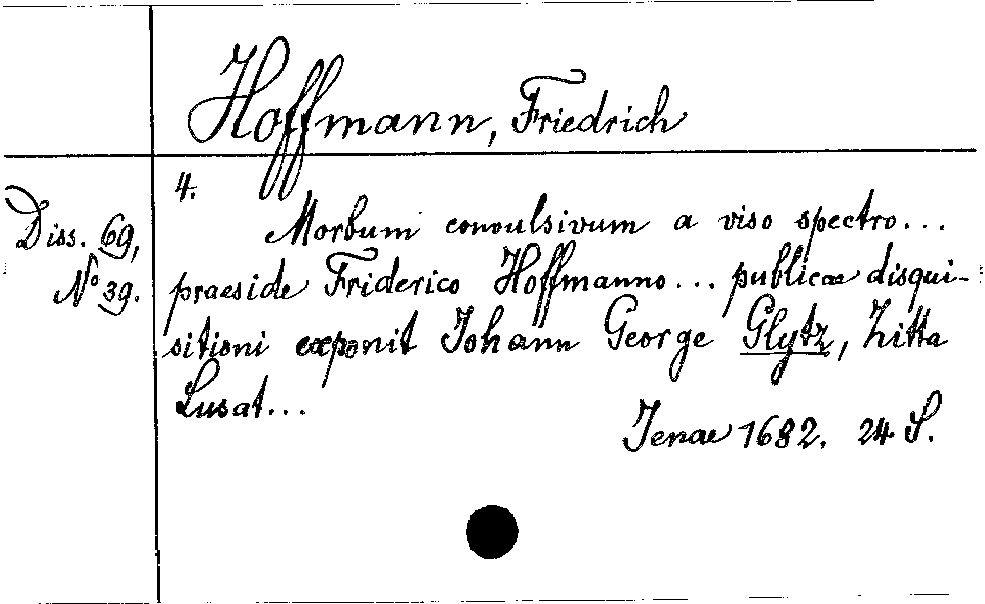 Hoffmann, Friedrich
4.
Diss. 69,
No 39.
Morbum convulsivum a viso spectro...
praeside Friderico Hoffmanno... publicae disqui-
sitioni exponit Johann George Glytz, Zitta
Lusat...
Jenae 1682. 24 S.